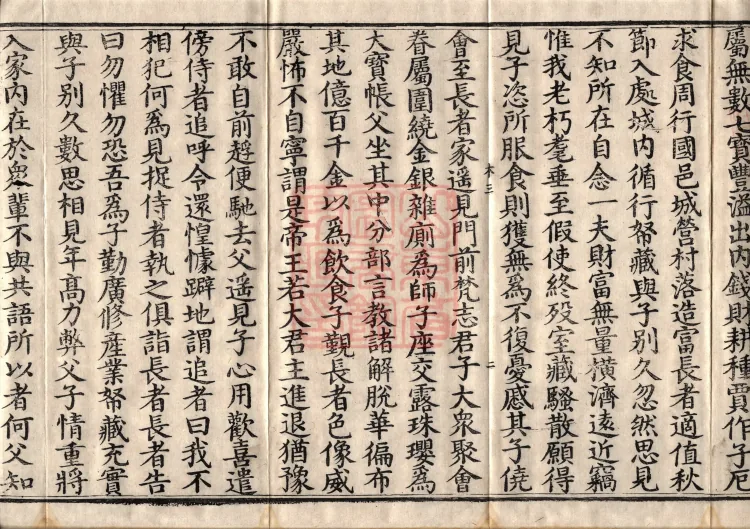 屬無數七寶豐溢出内錢財耕種賈作子厄
求食周行國邑城營村落造富長者適值秋
節入處城内循行帑藏與子別久忽然思見
不知所在自念一夫財富無量横濟遠近竊
惟我老朽耄垂至假使終殁室藏騷散願得
見子恣所服食則獲無爲不復憂慼其子僥
會至長者家遥見門前梵志君子大衆聚會
眷屬圍繞金銀雜廁爲師子座交露珠瓔爲
大寶帳父坐其中分部言教諸解脱華徧布
其地億百千金以爲飲食子覲長者色像威
嚴怖不自寧謂是帝王若大君主進退猶豫
不敢自前躃便馳去父遥見子心用歡喜遣
傍侍者追呼令還惶懅躃地謂追者曰我不
相犯何爲見捉侍者執之俱詣長者長者告
曰勿懼勿恐吾爲子勤廣修産業帑藏充實
與子別久數思相見年高力弊父子情重將
入家内在於衆輩不與共語所以者何父知